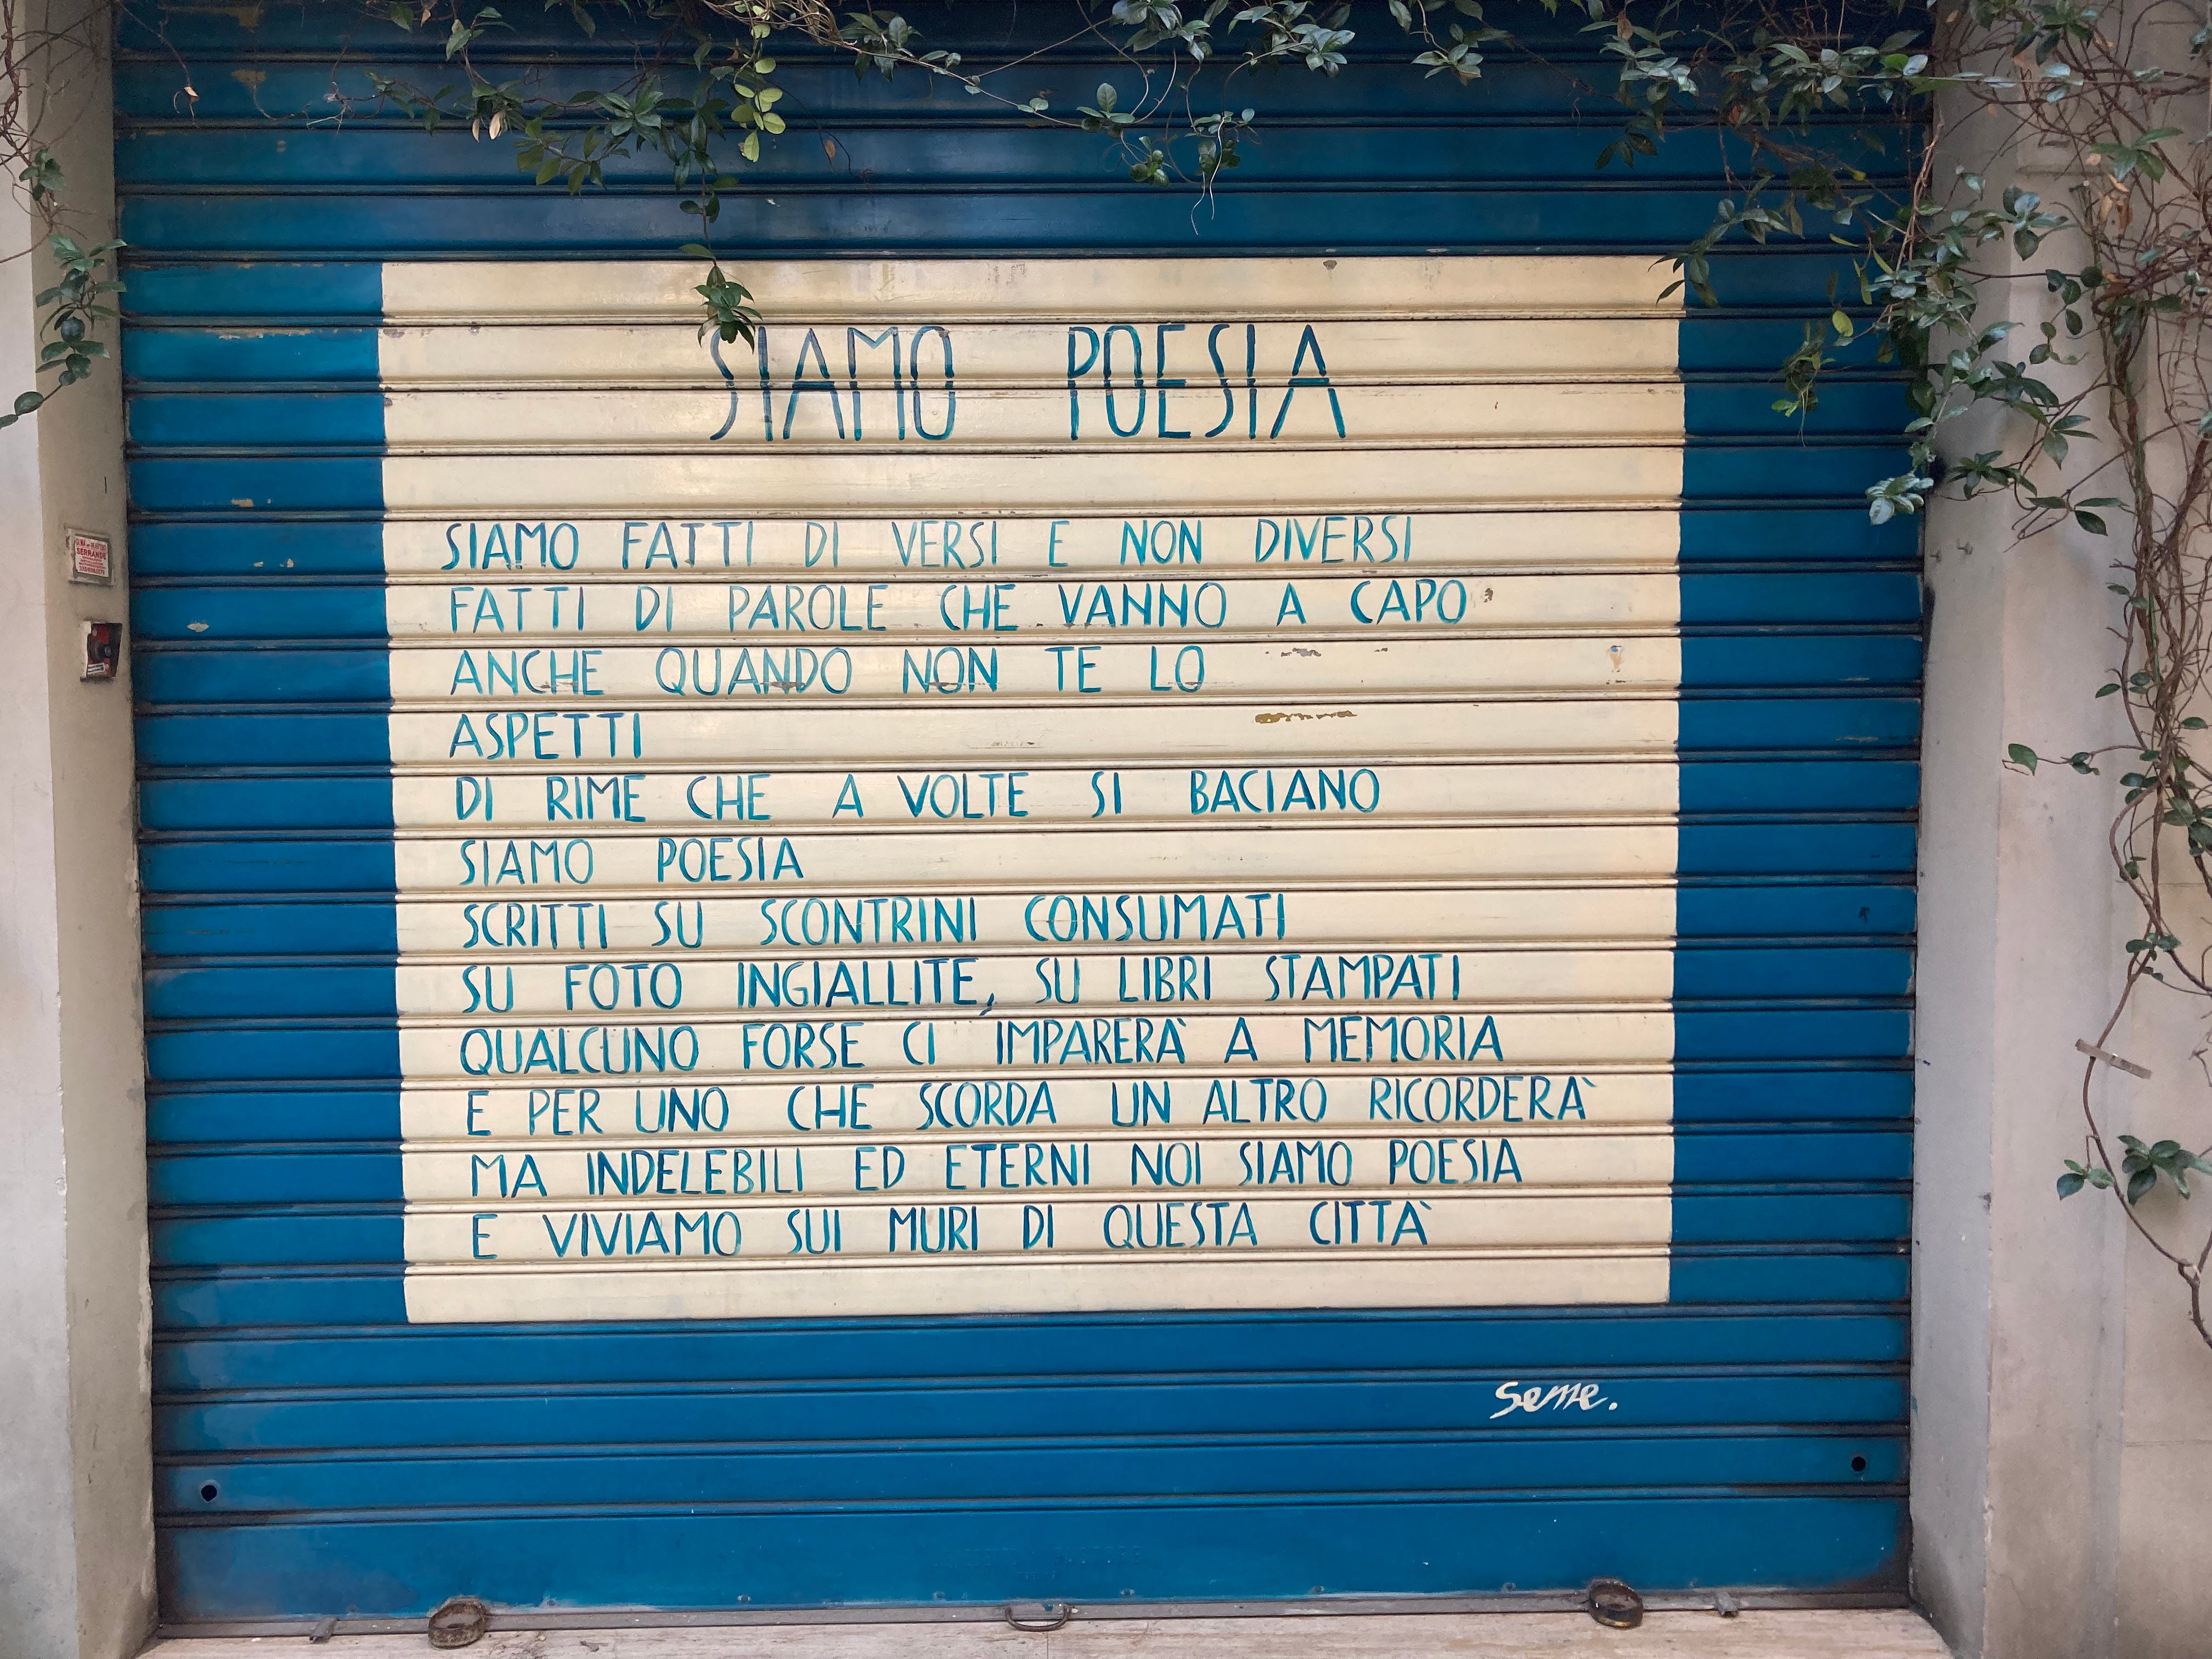 SIAMO POESIA
SIAMO FATTI DI VERSI E NON DIVERSI
FATTI DI PAROLE CHE VANNO A CAPO
ANCHE QUANDO NON TE LO
ASPETTI
DI RIME CHE A VOLTE SI BACIANO
SIAMO POESIA
SCRITTI SU SCONTRINI CONSUMATI
SU FOTO INGIALLITE, SU LIBRI STAMPATI
QUALCUNO FORSE CI IMPARERÀ A MEMORIA
E PER UNO CHE SCORDA UN ALTRO RICORDERÀ
MA INDELEBILI ED ETERNI NOI SIAMO POESIA
E VIVIAMO SUI MURI DI QUESTA CITTÀ
Seme.
SERRANDE